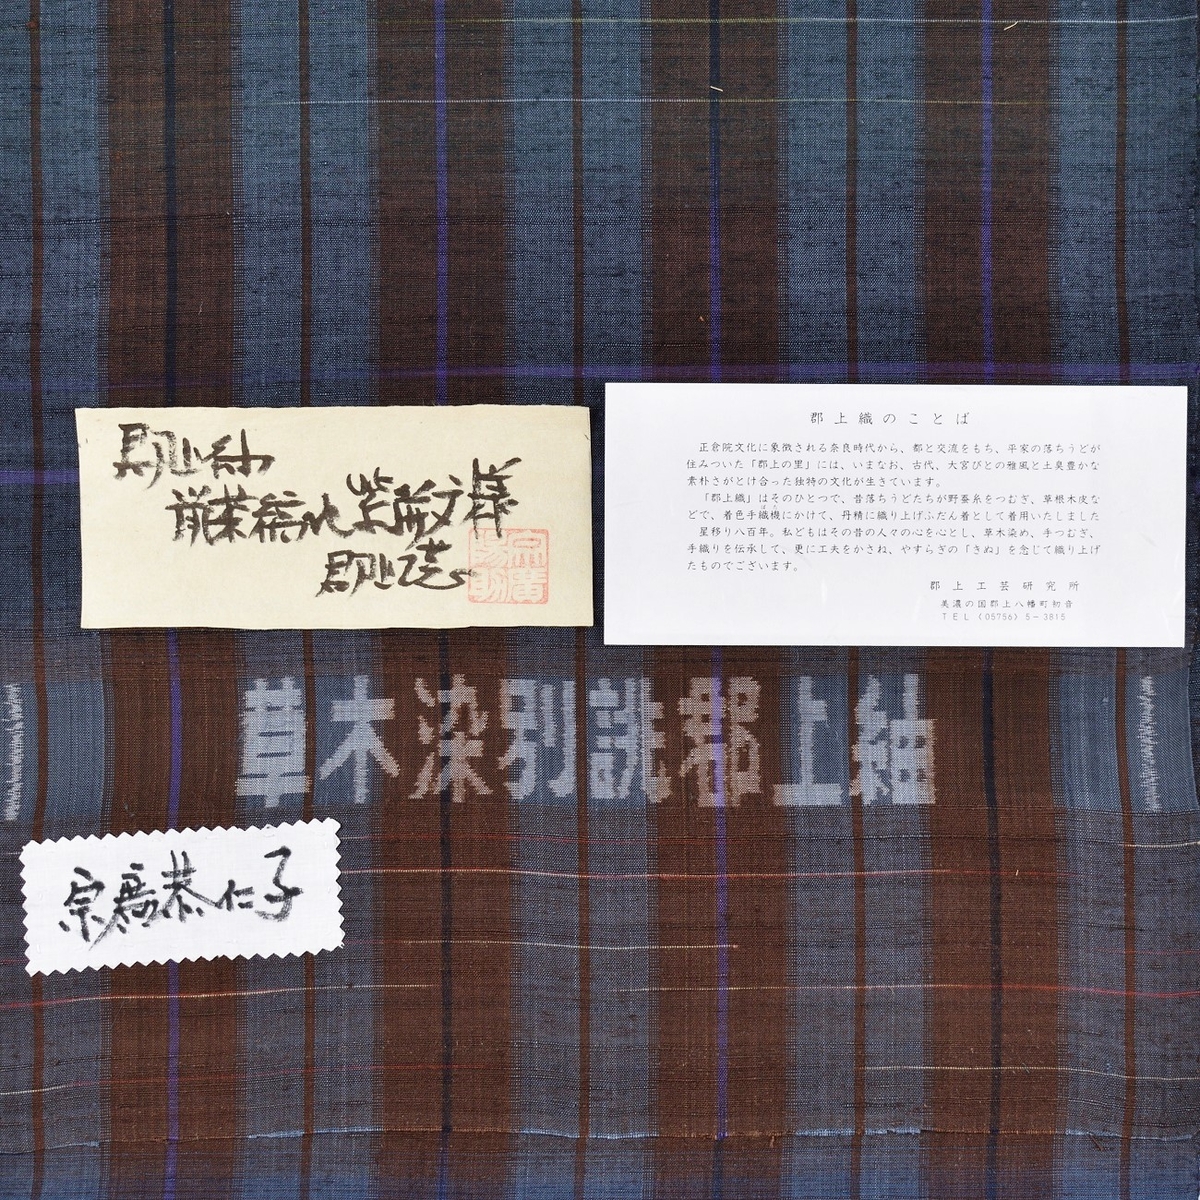 郡上紬
郡上
郡上織のことば
正倉院文化に象徴される奈良時代から、都と交流をもち、平家の落ちうどが
住みついた「郡上の里」には、いまなお、古代、大宮びとの雅風と土臭豊かな
素朴さがとけ合った独特の文化が生きています。
「郡上織」はそのひとつで、昔落ちうどたちが野蚕糸をつむぎ、草根木皮な
どで、着色手織機にかけて、丹精に織り上げふだん着として着用いたしました
星移り八百年。私どもはその昔の人々の心を心とし、草木染め、手つむぎ、
手織りを伝承して、更に工夫をかさね、やすらぎの「きぬ」を念じて織り上げ
たものでございます。
郡上工芸研究所
美濃の国郡上八幡町初音
TEL (05756) 5-3815
草木染別誂郡上紬
宗廣恭仁子